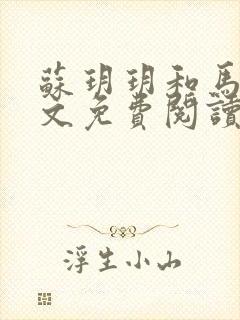 蘇玥玥和馬
文免費閱讀
浮生小山